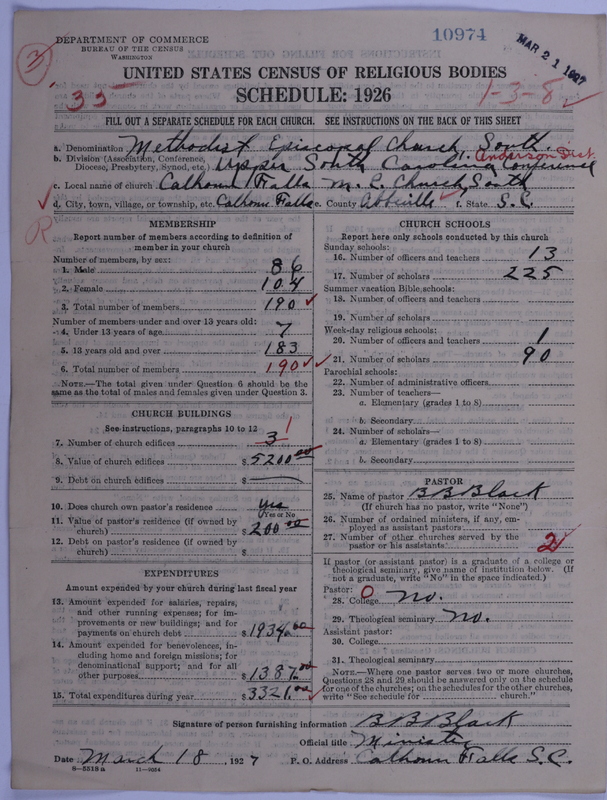 10974
MAR 21 1927
DEPARTMENT OF COMMERCE
BUREAU OF THE CENSUS
WASHINGTON
3
UNITED STATES CENSUS OF RELIGIOUS BODIES
35
SCHEDULE: 1926
1-3-8
FILL OUT A SEPARATE SCHEDULE FOR EACH CHURCH. SEE INSTRUCTIONS ON THE BACK OF THIS SHEET
a. Denomination Methodist Episcopal Church, South.
b. Division (Association, Conference, Diocese, Presbytery, Synod, etc.) Upper South Carolina Conference
Anderson Dist.
c. Local name of church Calhoun Falls M. E. Church South
d. City, town, village, or township, etc. Calhoun Falls e. County Abbeville f. State S.C.
R
MEMBERSHIP
Report number of members according to definition of
member in your church
Number of members, by sex:
1. Male 86
2. Female 104
3. Total number of members 190
Number of members under and over 13 years old:
4. Under 13 years of age 7
5. 13 years old and over 183
6. Total number of members 190
NOTE.—The total given under Question 6 should be the
same as the total of males and females given under Question 3.
CHURCH BUILDINGS
See instructions, paragraphs 10 to 12
7. Number of church edifices 3 1
8. Value of church edifices $ 5200.00
9. Debt on church edifices $
10. Does church own pastor's residence yes
(Yes or No)
11. Value of pastor's residence (if owned by
church) $ 200.00
12. Debt on pastor's residence (if owned by
church) $
EXPENDITURES
Amount expended by your church during last fiscal year
13. Amount expended for salaries, repairs,
and other running expenses; for im-
provements or new buildings; and for
payments on church debt $ 1934.00
14. Amount expended for benevolences, in-
cluding home and foreign missions; for
denominational support; and for all
other purposes $ 1387.00
15. Total expenditures during year $ 3321.00
CHURCH SCHOOLS
Report here only schools conducted by this church
Sunday schools:
16. Number of officers and teachers 13
17. Number of scholars 225
Summer vacation Bible schools:
18. Number of officers and teachers
19. Number of scholars
Week-day religious schools:
20. Number of officers and teachers 1
21. Number of scholars 90
Parochial schools:
22. Number of administrative officers
23. Number of teachers—
a. Elementary (grades 1 to 8)
b. Secondary
24. Number of scholars—
a. Elementary (grades 1 to 8)
b. Secondary
PASTOR
25. Name of pastor B B Black
(If church has no pastor, write "None")
26. Number of ordained ministers, if any, em-
ployed as assistant pastors
27. Number of other churches served by the
pastor or his assistants 2
If pastor (or assistant pastor) is a graduate of a college or
theological seminary, give name of institution below. (If
not a graduate, write "No" in the space indicated.)
Pastor: 0
28. College no.
29. Theological seminary no.
Assistant pastor:
30. College
31. Theological seminary
NOTE.—Where one pastor serves two or more churches,
Questions 28 and 29 should be answered only on the schedule
for one of the churches; on the schedules for the other churches,
write "See schedule for church."
Signature of person furnishing information B B Black
Official title Minister
Date March 18, 1927 P. O. Address Calhoun Falls S.C.
11—9064